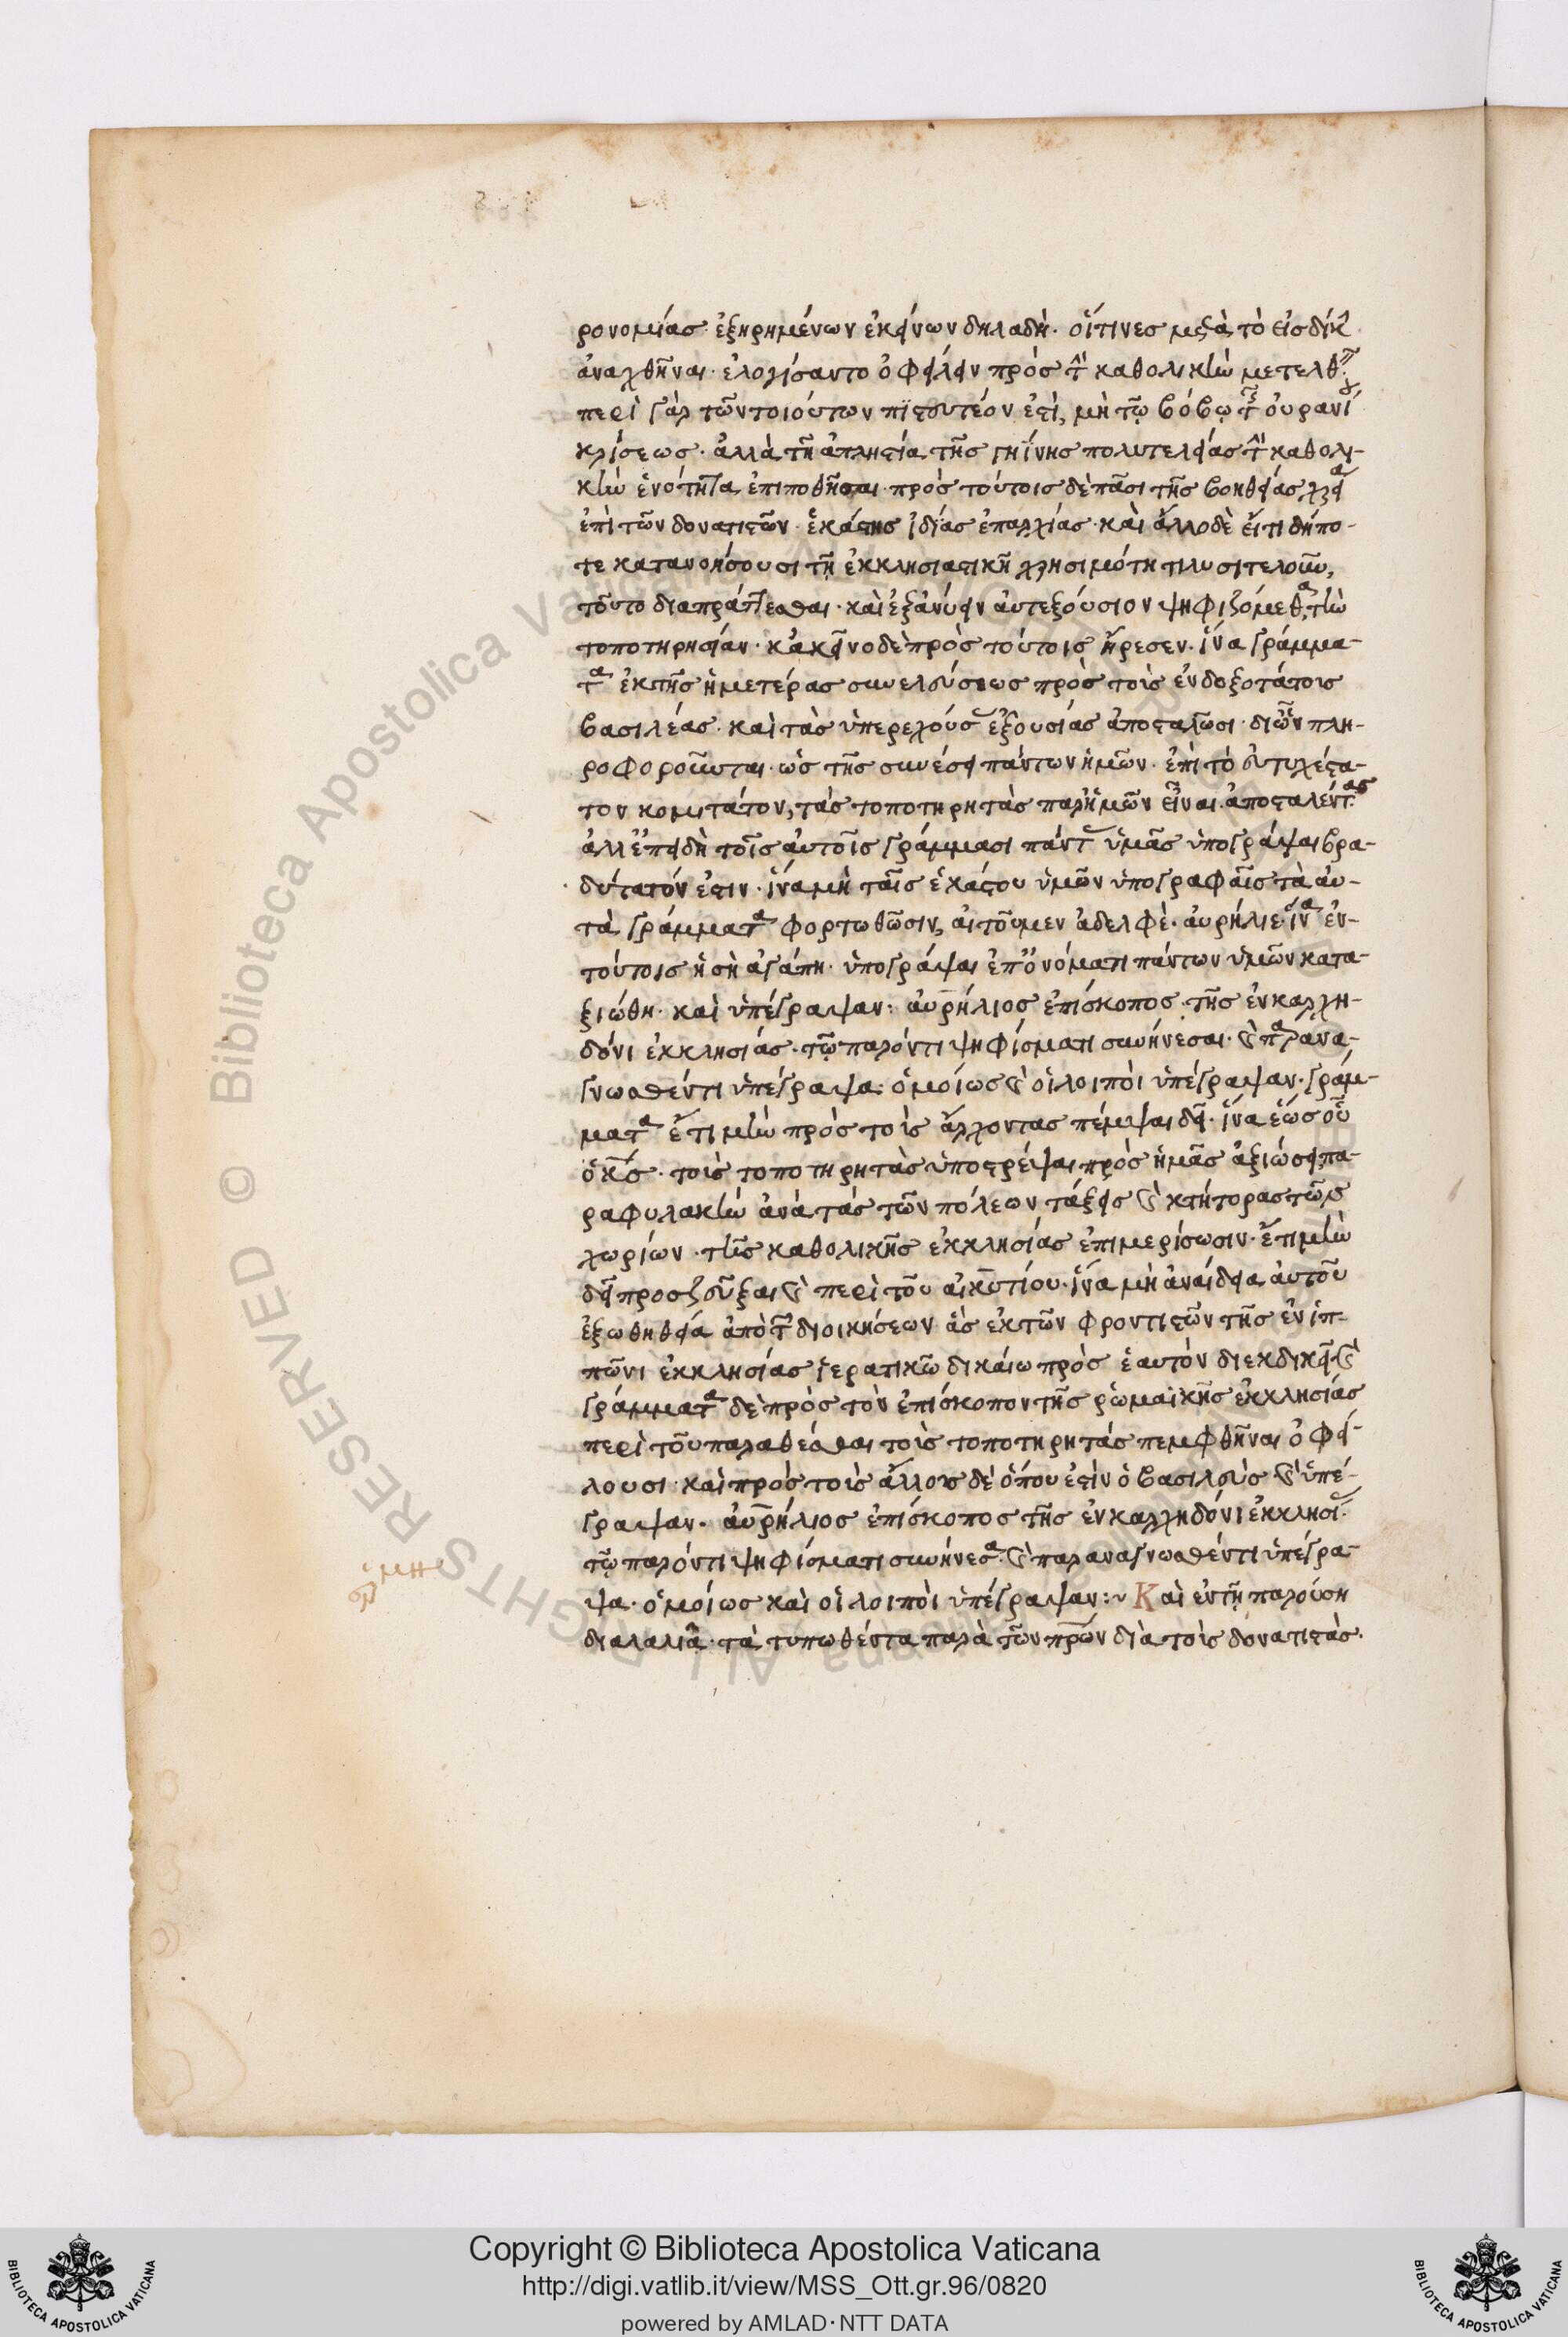 ρονομίας ἐξῃρημένων ἐκείνων δηλαδή· οἵτινες μετὰ τὸ εἰς δίκ
ἀναχθῆναι· ἐλογίσαντο ὀφείλειν πρὸς τ καθολικὴν μετελθ
περὶ γὰρ τῶν τοιούτων πιστευτέον ἐστί, μὴ τῷ βόβῳ τ οὐρανί
κρίσεως· ἀλλὰ τῇ ἀπληστίᾳ τῆς γηΐνης πολυτελείας τ καθολι-
κὴν ἑνότητα ἐπιποθῆσαι· πρὸς τούτοις δὲ πᾶσι τῆς βοηθείας χρεία
ἐπὶ τῶν δονατιστῶν· ἑκάστης ἰδίας ἐπαρχίας· καὶ ἄλλο δὲ εἴ τι δήπο-
τε κατανοήσουσι τῇ ἐκκλησιαστικῇ χρησιμότητι λυσιτελοῦν,
τοῦτο διαπράττεσθαι· καὶ ἐξανύειν αὐτεξούσιον ψηφιζόμεθα τὴν
τοποτηρησίαν· κἀκεῖνο δὲ πρὸς τούτοις ἤρεσεν· ἵνα γράμμα-
τα ἐκ τῆς ἡμετέρας συνελεύσεως πρὸς τοὺς ἐνδοξοτάτους
βασιλέας· καὶ τὰς ὑπερεχούσ ἐξουσίας ἀποσταλῶσι· δι ὧν πλη-
ροφοροῦνται· ὡς τῆς συνέσει πάντων ἡμῶν· ἐπὶ τὸ εὐτυχέστα-
τον κομιτάτον, τὰς τοποτηρητὰς παρ ἡμῶν εἶναι ἀποσταλέντας
ἀλλ ἐπειδὴ τοῖς αὐτοῖς γράμμασι πάντ ὑμᾶς ὑπογράψαι βρα-
δύτατόν ἐστιν· ἵνα μὴ ταῖς ἑκάστου ὑμῶν ὑπογραφαῖς τὰ αὐ-
τὰ γράμματα φορτωθῶσιν, αἰτοῦμεν ἀδελφὲ· αὐρήλιε· ἵνα ἐν
τούτοις ἡ σὴ ἀγάπη· ὑπογράψαι ἐπ ὀνόματι πάντων ὑμῶν κατα-
ξιώθη· καὶ ὑπέγραψαν· αὐρήλιος ἐπίσκοπος τῆς ἐν καλχη-
δόνι ἐκκλησίας· τῷ παρόντι ψηφίσματι συνῄνεσαι· καὶ παρανα-
γνωσθέντι ὑπέγραψα· ὁμοίως καὶ οἱ λοιποὶ ὑπέγραψαν· γράμ-
ματα ἔτι μὴν πρὸς τοὺς ἄρχοντας πέμψαι δεῖ· ἵνα ἕως οὗ
ὁ κς· τοὺς τοποτηρητὰς ὑποστρέψαι πρὸς ἡμᾶς ἀξιώσει, πα-
ραφυλακὴν ἀνὰ τὰς τῶν πόλεων τάξεις καὶ κτήτορας τῶν
χωρίων· τῆς καθολικῆς ἐκκλησίας ἐπιμερίσωσιν· ἔτι μὴν
δεῖ προσζεῦξαι καὶ περὶ τοῦ αἰκυτίου· ἵνα μὴ ἀναίδεια αὐτοῦ
ἐξωθηθείη ἀπὸ τ διοικήσεων ἃς ἐκ τῶν φροντιστῶν τῆς ἐν ἱπ-
πῶνι ἐκκλησίας ἱερατικῶ δικαίω πρὸς ἑαυτὸν διεκδικεῖ· καὶ
γράμματα δὲ πρὸς τὸν ἐπίσκοπον τῆς ῥωμαϊκῆς ἐκκλησίας
περὶ τοῦ παραθέσθαι τοὺς τοποτηρητὰς πεμφθῆναι ὀφεί-
λουσι· καὶ πρὸς τοὺς ἄλλους δὲ ὅπου ἐστὶν ὁ βασιλεὺς καὶ ὑπέ-
γραψαν· αὐρήλιος ἐπίσκοπος τῆς ἐν καλχηδόνι ἐκκλησί
τῷ παρόντι ψηφίσματι συνῄνεσα· καὶ παραναγνωσθέντι ὑπέγρα-
ψα· ὁμοίως καὶ οἱ λοιποὶ ὑπέγραψαν:~ Καὶ ἐν τῇ παρούσῃ
διαλαλιᾷ· τὰ τυπωθέντα παρὰ τῶν πρων διὰ τοὺς δονατιστάς·
Copyright © Biblioteca Apostolica Vaticana
http://digi.vatlib.it/view/MSS_Ott.gr.96/0820
powered by AMLAD·NTT DATA